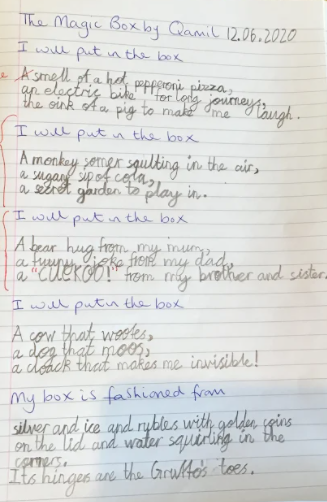 The Magic Box by Qamil 12.06.2020
I will put in the box
A smell of a hot pepperoni pizza,
an electric bike for long journeys,
the oink of a pig to make me laugh.
I will put in the box
A monkey somer squlting in the air,
a sugary sip of cola,
a secret garden to play in.
I will put in the box
A bear hug from my mum,
a funny joke from my dad,
a "CUCKOO!" from my brother and sister.
I will put in the box
A cow that woofes,
a dog that moos,
a cloack that makes me invisible!
My box is fashioned from
silver and ice and rybles with golden coins
on the lid and water squirling in the
corners.
Its hinges are the Gruffo's toes.